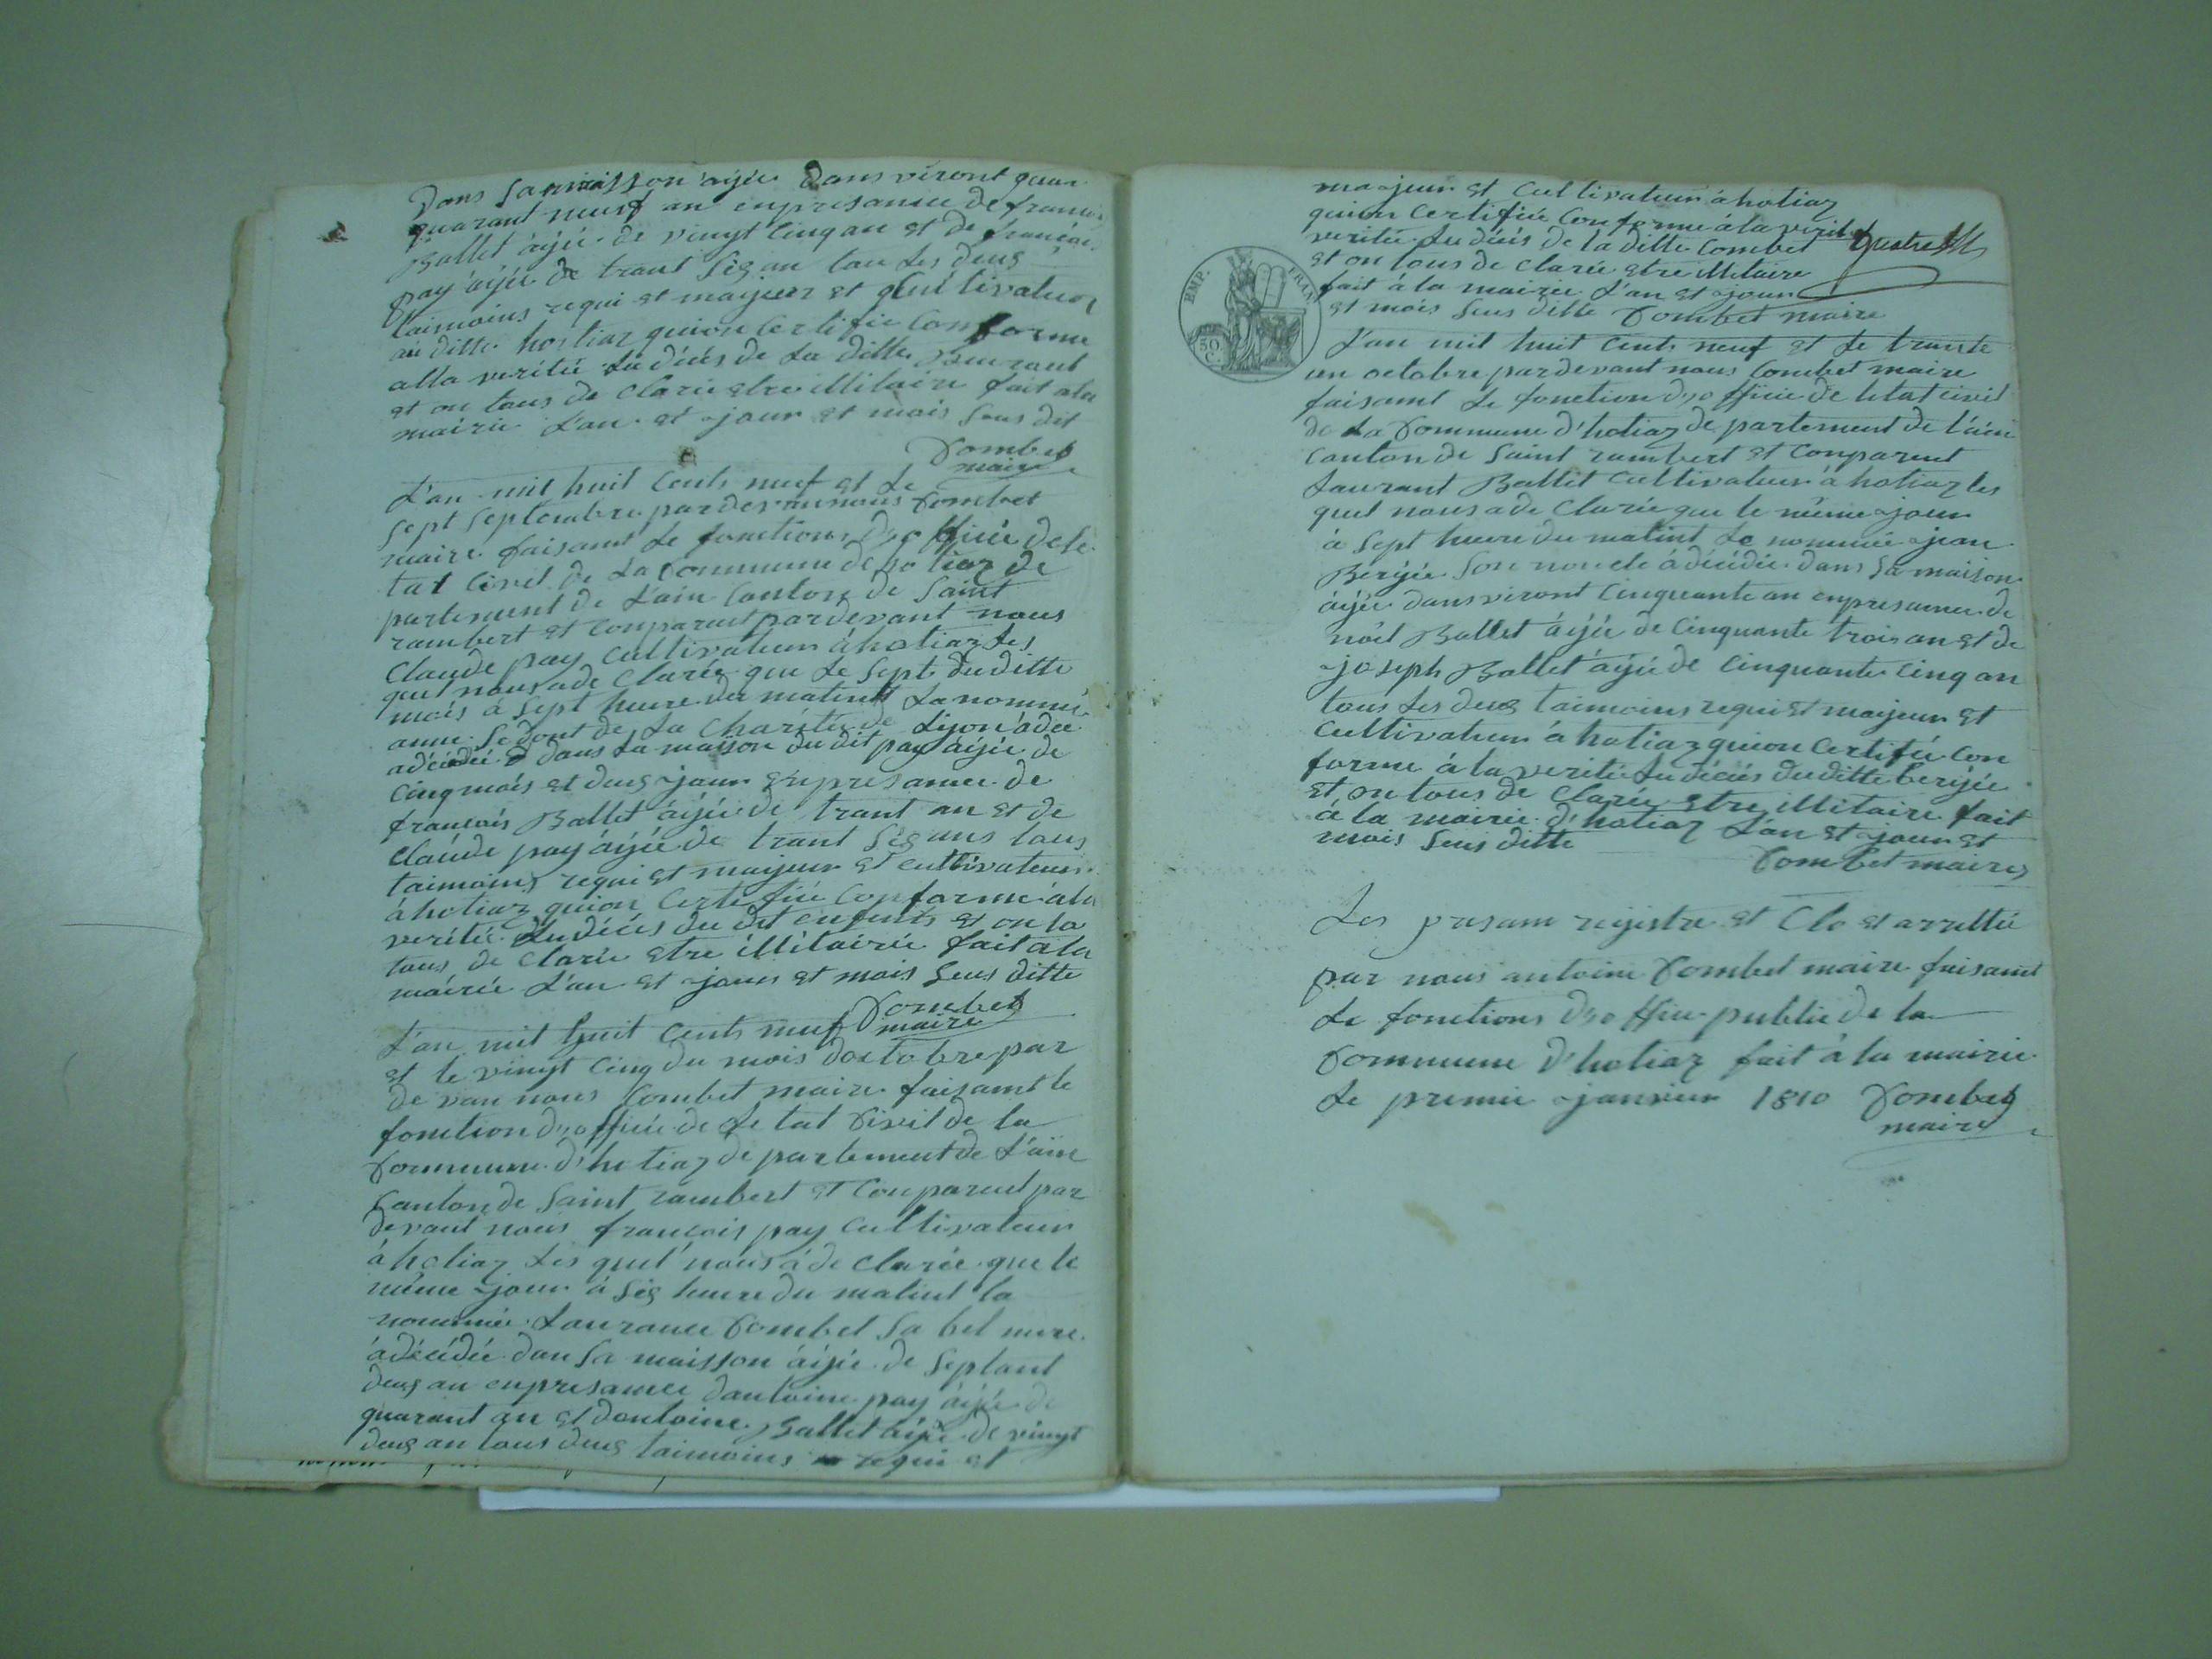 Dans sa maisson aijée dans viront quar
quarant neuf an enpresamce de francois
Ballet aijée de vingt cinq an et de francois
pay aijée de trant sis an tou les deus
taimoins requi et majeur et cultivateur
au ditte hostiaz quion certifié conforme
alla verité du décés de la ditte
et on tous de clarée etre illitaire fait ala
mairie l'an et jour et mois sus dit
Combet
maire
L'an mil huit cents neuf et le
sept septembre par devan nous Combet
maire faisant le fonctions d'officié de le
tat civil de la Commune de hotiaz de
partement de L'ain canton de Saint
rambert et comparut par devant nous
Claude pay cultivateur à hotiaz les
quel nous a de clarée que le sept du ditte
mois a sept heure du matint la nommé
anne de la Charité de Lijon a dée
a décédée dans la maison du dit pay aijée de
cinq mois et deus jour enpresamce de
francois Ballet aijée de trant an et de
Claude pay aijée de trant sis ans tous
taimoins requi et majeur et cultivateur
à hotiaz quion certifiée conforme à la
verité du décés du dit enfants et on la
tous de clarée etre illitairée fait a la
mairie L'an et jour et mois sus ditte
Combet
maire
L'an mil huit cents neuf
et le vingt cinq du mois doctobre par
de van nous Combet maire faisant le
fonction d'offiée de le tat Civil de la
Commune d'hotiaz de partement de L'ain
Canton de Saint rambert et comparut par
devant nous francois pay cultivateur
à hotiaz les quel nous a de clarée que le
même jour à sis heure du matint la
nommée Laurance Combet sa bel mere
a décédée dan sa maisson aijée de septant
deus an enpresamce dantoine pay aijée de
quarant an et dantoine Ballet aijée de vingt
deus an tous deus taimoins requi et
majeur et cultivateur à hotiaz
quion certifiée conforme à la verité
verité du décés de la ditte Combet
et on tous de clarée etre illitaire
fait à la mairie L'an et jour
et mois sus ditte Combet maire
EMP. FRAN.
50
C.
L'an mil huit cents neuf et le trante
un octobre par devant nous Combet maire
faisant le fonction d'offiée de letat civil
de la Commune d'hotiaz de partement de l'ain
canton de Saint rambert et comparut
Laurant Ballet cultivateur à hotiaz les
quel nous a de clarée que le même jour
à sept heure du matint le nommée jean
Berijée son noncle à décédée dans sa maison
aijée dans viront cinquante an enpresamce de
noël Ballet aijée de cinquante trois an et de
joseph Ballet aijée de cinquante cinq an
tous les deus taimoins requi et majeur et
cultivateur à hotiaz quion certifée con
forme à la verité du décés du ditte berijée
et on tous de clarée etre illitaire fait
à la mairie d'hotiaz L'an et jour et
mois sus ditte
Combet maire
Les presam rejistre et Clo et arrettée
par nous antoine Combet maire faisant
le fonctions d'offiée publié de la
Commune d'hotiaz fait à la mairie
le premié janvier 1810 Combet
maire